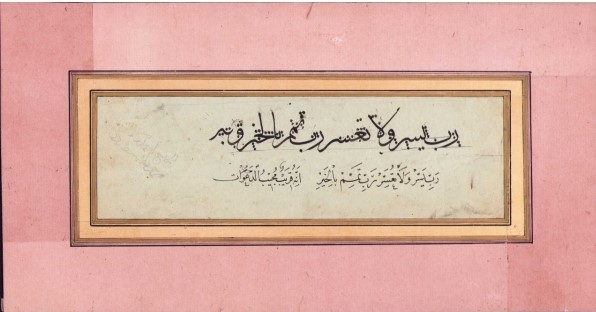 رب يسر ولا تعسر رب تمم بالخير
رَبِّ يَسِّرْ وَلَا تُعَسِّرْ رَبِّ تَمِّمْ بِالْخَيْرِ اِنَّهُ قَرِيبٌ مُجِيبُ الدَّعَوَاتِ